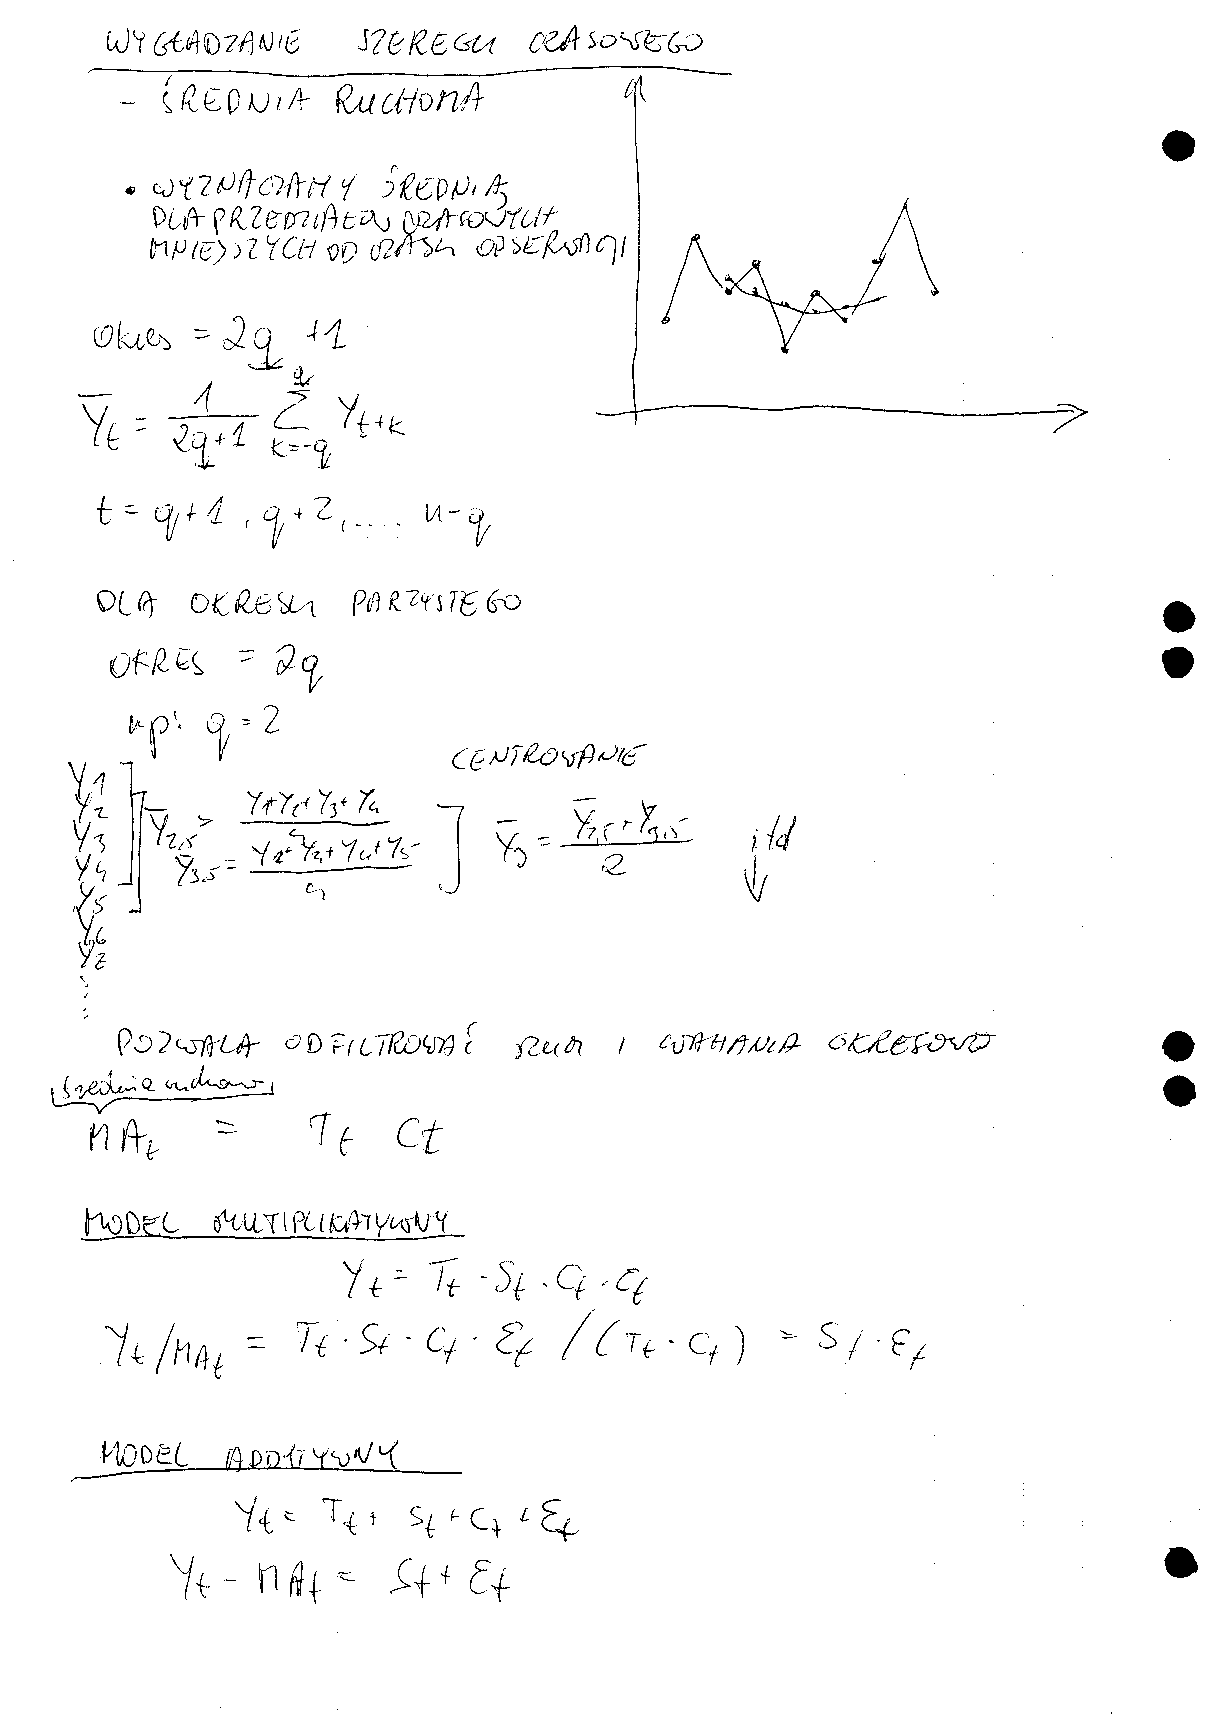 WYGŁADZANIE SZEREGU CZASOWEGO
- ŚREDNIA RUCHOMA
• WYZNACZAMY ŚREDNIĄ
DLA PRZEDZIAŁÓW CZASOWYCH
MNIEJSZYCH OD CZASU OBSERWACJI
okres = 2q +1
Ȳt = 1/(2q+1) Σ_{k=-q}^{q} Yt+k
t = q+1, q+2, .... n-q
DLA OKRESU PARZYSTEGO
OKRES = 2q
np: q = 2
CENTROWANIE
Y1
Y2
Y3
Y4
Y5
Y6
Y7
Ȳ2,5 = (Y1+Y2+Y3+Y4)/4
Ȳ3,5 = (Y2+Y3+Y4+Y5)/4
Ȳ3 = (Ȳ2,5 + Ȳ3,5)/2
itd
POZWALA ODFILTROWAĆ SZUM I WAHANIA OKRESOWE
średnia ruchoma
MAt = Tt Ct
MODEL MULTIPLIKATYWNY
Yt = Tt · St · Ct · Ɛt
Yt/MAt = Tt · St · Ct · Ɛt / (Tt · Ct) = St · Ɛt
MODEL ADDITYWNY
Yt = Tt + St + Ct + Ɛt
Yt - MAt = St + Ɛt